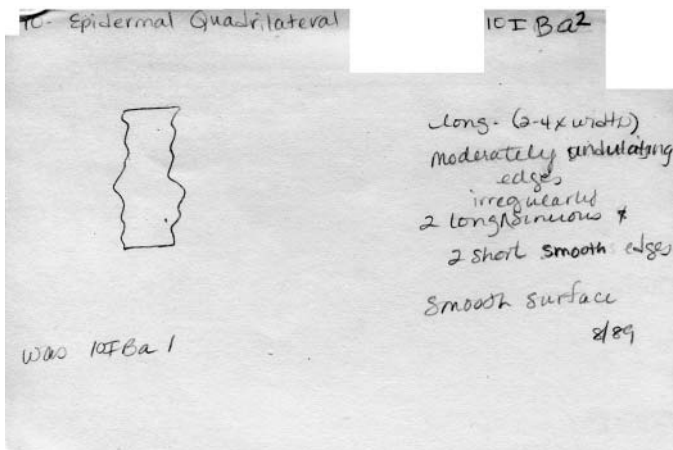 10- Epidermal Quadrilateral 10IBa2
long- (2-4 x width)
moderately undulating
edges
irregularly
2 long sinuous &
2 short smooth edges
smooth surface
8/89
was 10IBa1